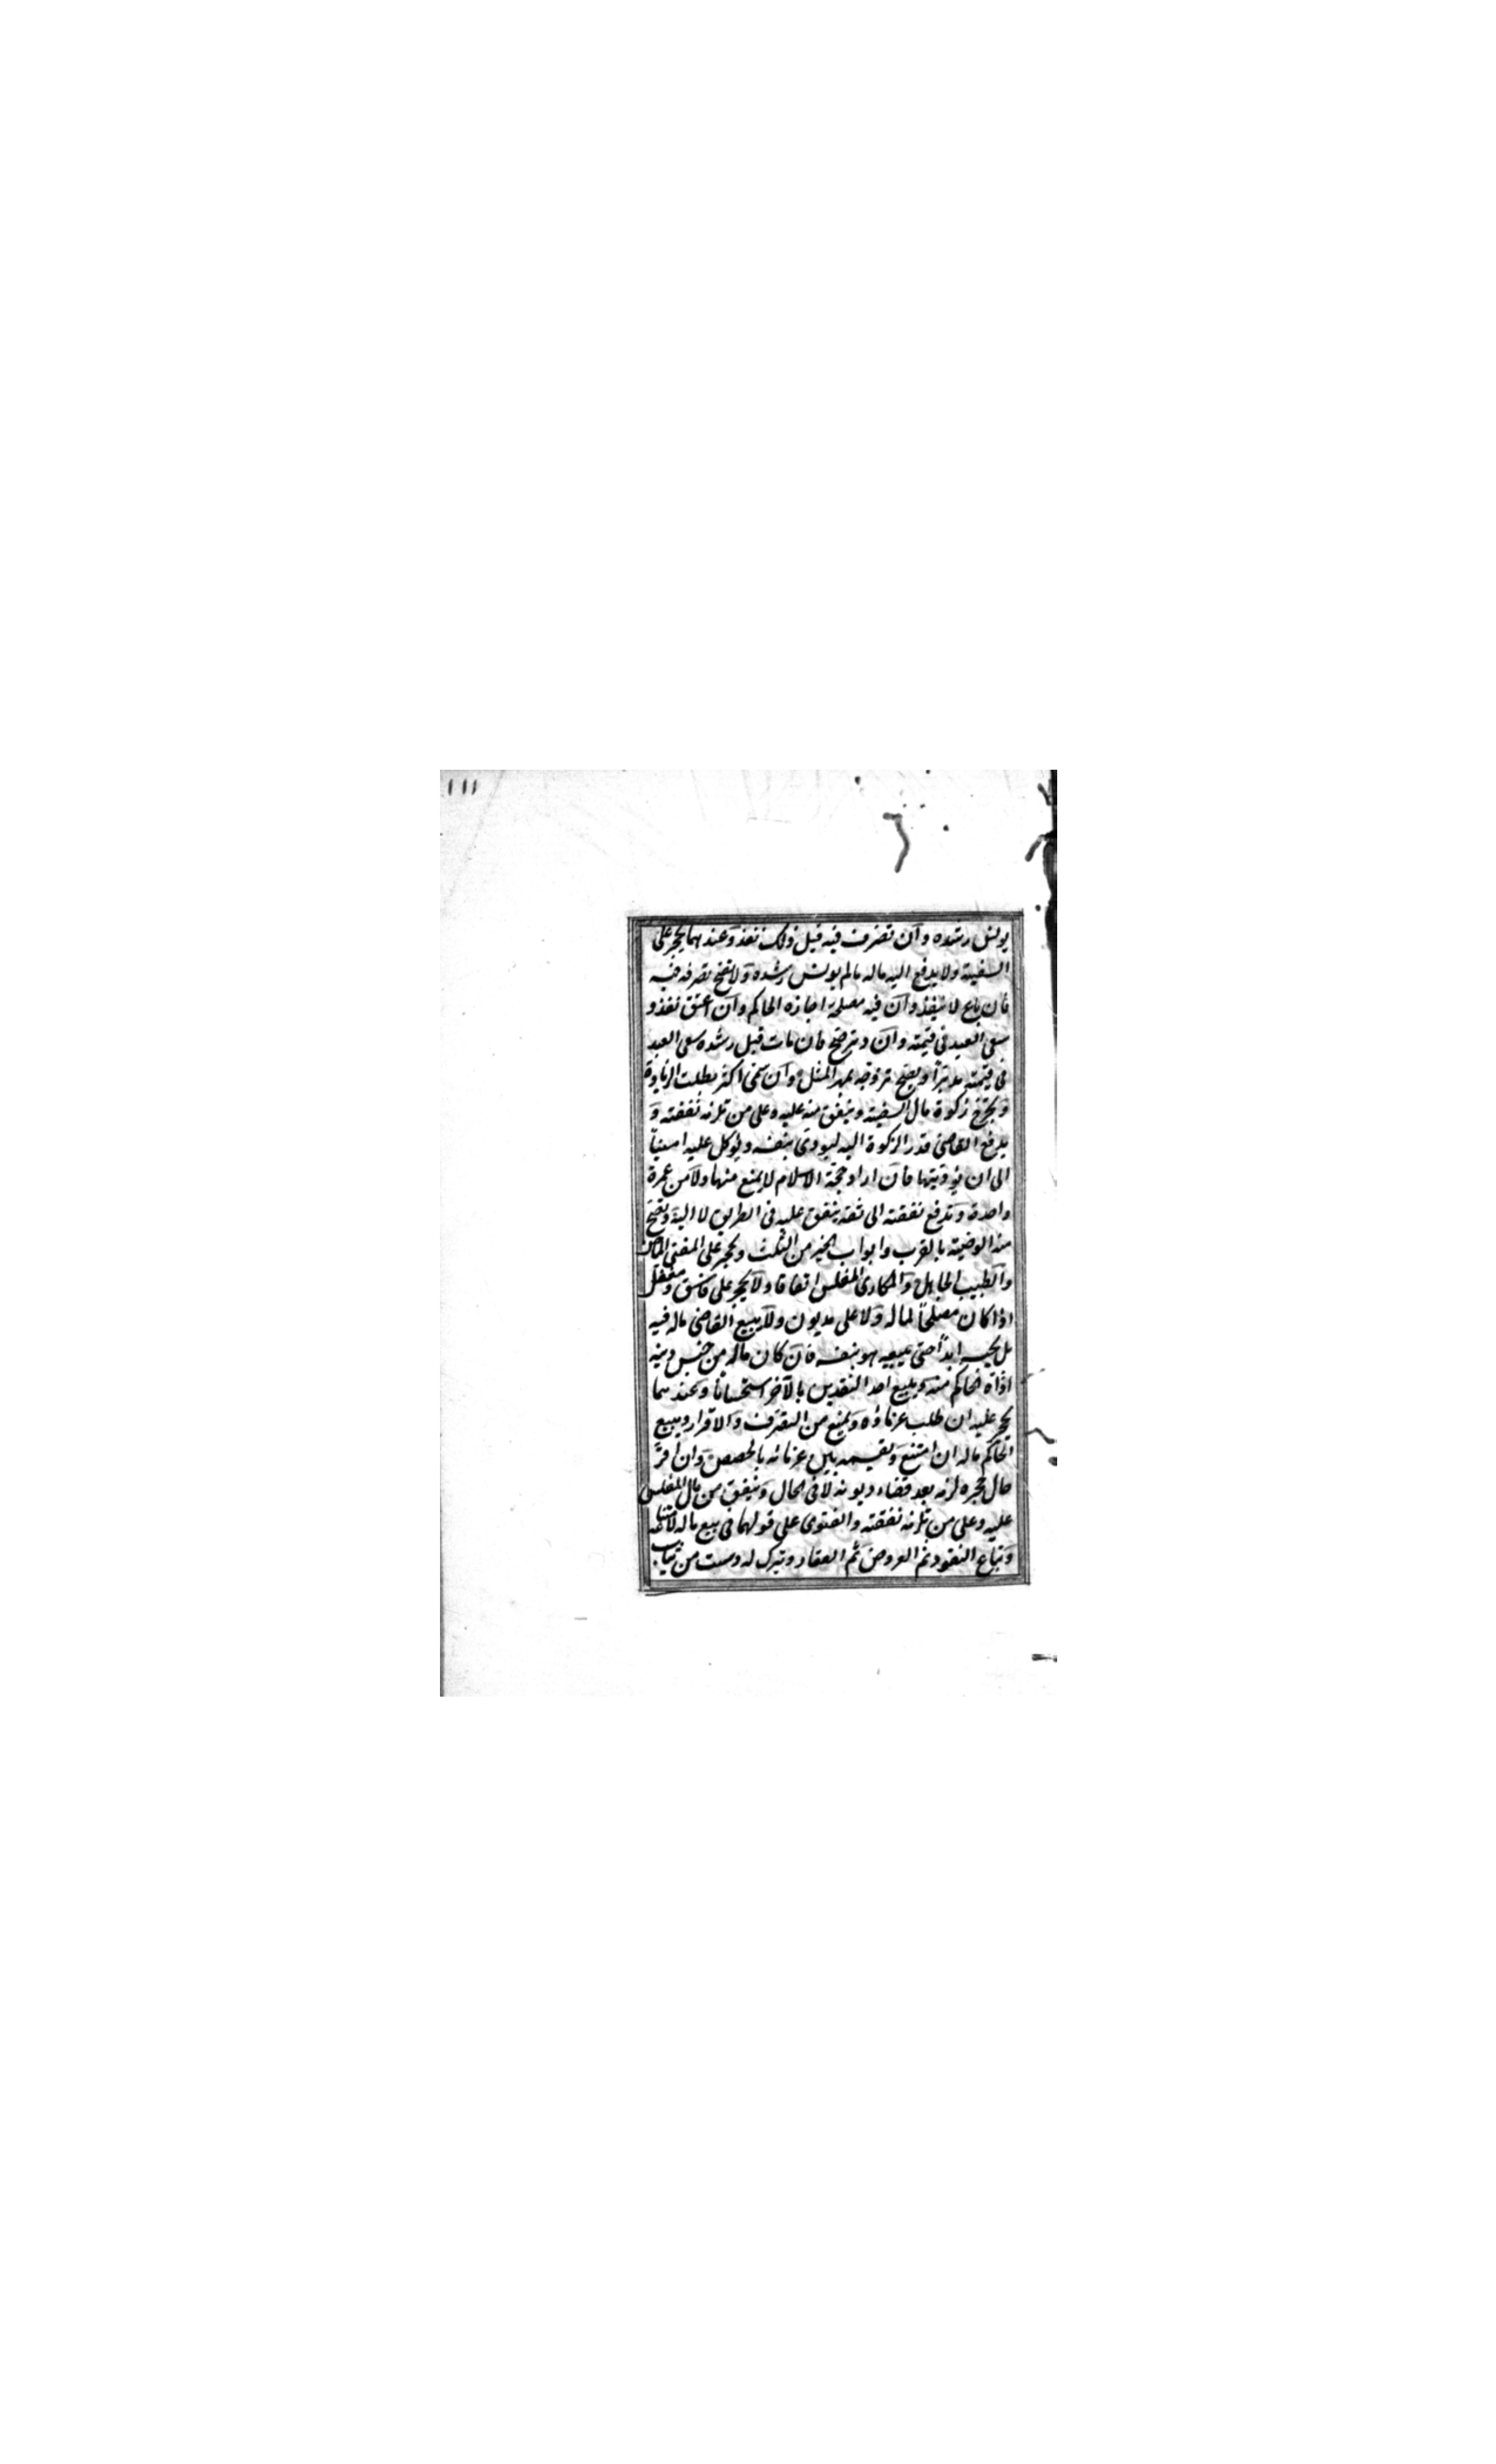 ١١١
يونس رشده وان تصرف فيه قبل ذلك نفذ وعندهما يحجر على
السفيه ولا يدفع اليه ماله مالم يونس رشده ولا تصح تصرفه فيه
فان باع لا ينفذ وان فيه مصلحة اجازه الحاكم وان اعتق نفذ و
سعى العبد في قيمته وان دبر صح فان مات قبل رشده سعى العبد
في قيمته مدبرا ويصح تزوجه بمهر المثل وان سمى اكثر بطلت الزيادة
وتخرج زكوة مال السفيه وينفق منه عليه وعلى من تلزمه نفقته و
يدفع القاضي قدر الزكوة اليه ليودى بنفسه ويوكل عليه امينا
الى ان يؤديها فان اراد حجة الاسلام لا يمنع منها ولا من عمرة
واحدة وتدفع نفقته الى ثقة ينفق عليه في الطريق لا اليه وتصح
منه الوصية بالقرب وابواب الخير من الثلث ويحجر على المفتي الماجن
والطبيب الجاهل والمكارى المفلس اتفاقا ولا يحجر على فاسق ومغفل
اذا كان مصلحا لماله ولا على مديون ولا يبيع القاضي ماله فيه
بل يحبسه ابدا حتى يبيعه هو بنفسه فان كان ماله من جنس دينه
اداه الحاكم منه ويبيع احد النقدين بالآخر استحسانا وعندهما
يحجر عليه ان طلب غرماؤه ويمنع من التصرف والاقرار ويبيع
الحاكم ماله ان امتنع ويقسمه بين غرمائه بالحصص وان اقر
حال حجره لزمه بعد قضاء ديونه لا في الحال وينفق من مال المفلس
عليه وعلى من تلزمه نفقته والفتوى على قولهما في بيع ماله لامتناعه
وتباع النقود ثم العروض ثم العقار ويترك له دست من ثياب